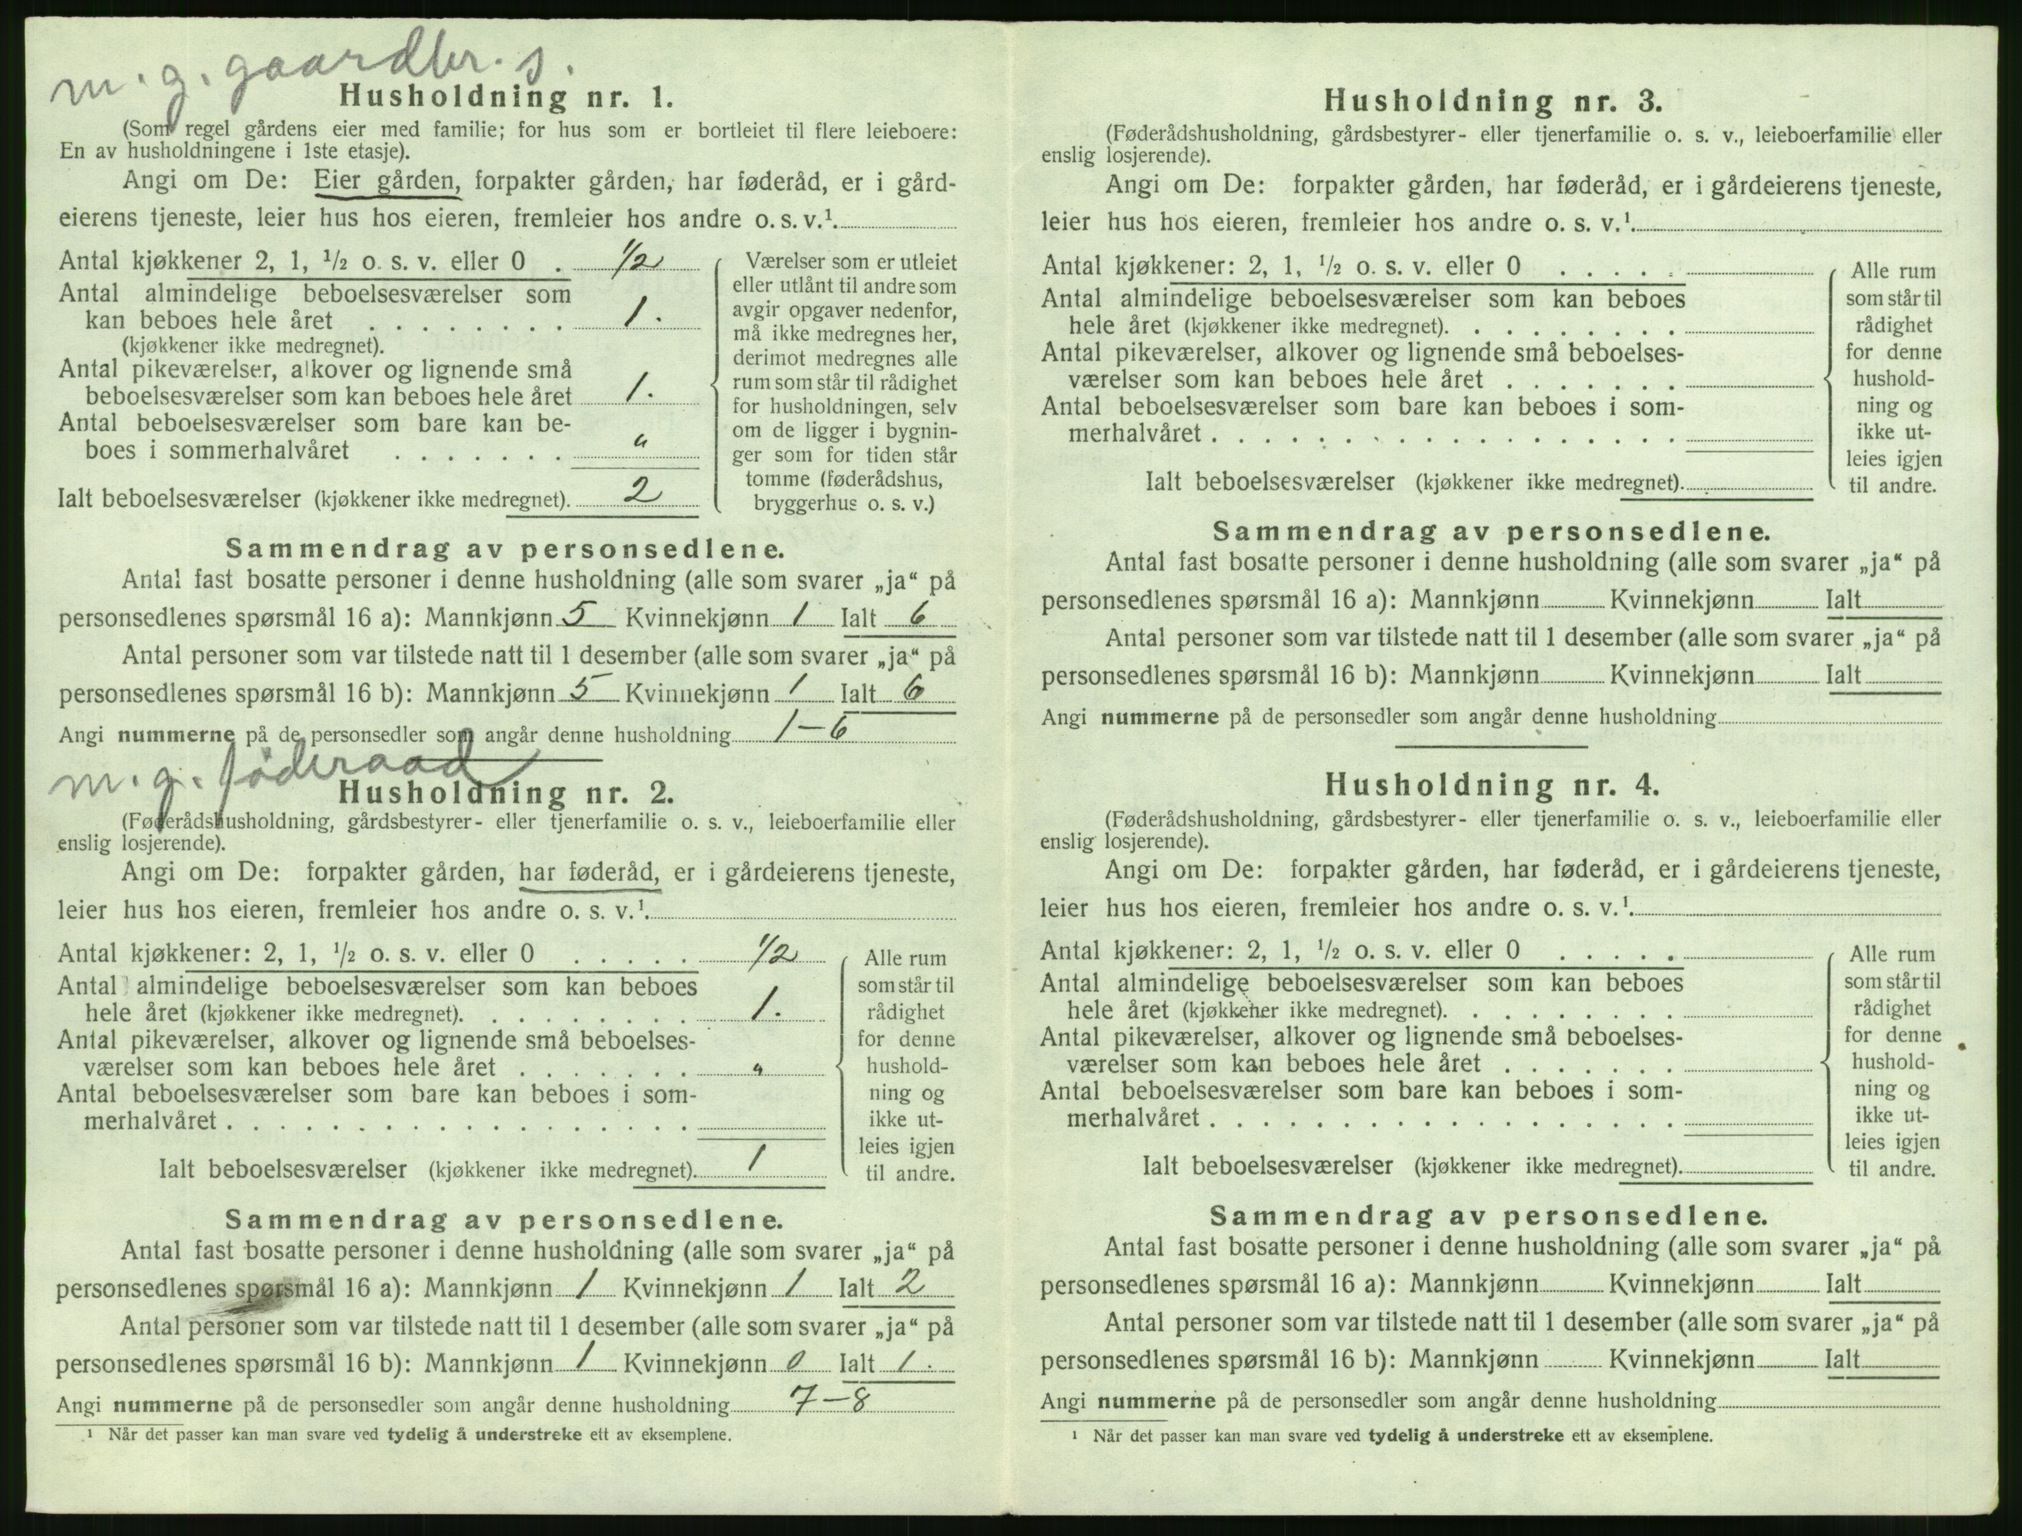 m. g. gaardbr. s.
Husholdning nr. 1.
(Som regel gårdens eier med familie; for hus som er bortleiet til flere leieboere:
En av husholdningene i 1ste etasje).
Angi om De: Eier gården, forpakter gården, har føderåd, er i gård-
eierens tjeneste, leier hus hos eieren, fremleier hos andre o. s. v.¹
Antal kjøkkener 2, 1, ½ o. s. v. eller 0 . ½
Antal almindelige beboelsesværelser som
kan beboes hele året . . . . . . . . 1.
(kjøkkener ikke medregnet).
Antal pikeværelser, alkover og lignende små
beboelsesværelser som kan beboes hele året 1.
Antal beboelsesværelser som bare kan be-
boes i sommerhalvåret . . . . . . . "
Ialt beboelsesværelser (kjøkkener ikke medregnet). 2
Værelser som er utleiet
eller utlånt til andre som
avgir opgaver nedenfor,
må ikke medregnes her,
derimot medregnes alle
rum som står til rådighet
for husholdningen, selv
om de ligger i bygnin-
ger som for tiden står
tomme (føderådshus,
bryggerhus o. s. v.)
Sammendrag av personsedlene.
Antal fast bosatte personer i denne husholdning (alle som svarer „ja“ på
personsedlenes spørsmål 16 a): Mannkjønn 5 Kvinnekjønn 1 Ialt 6
Antal personer som var tilstede natt til 1 desember (alle som svarer „ja“ på
personsedlenes spørsmål 16 b): Mannkjønn 5 Kvinnekjønn 1 Ialt 6
Angi nummerne på de personsedler som angår denne husholdning 1–6
m. g. føderaad
Husholdning nr. 2.
(Føderådshusholdning, gårdsbestyrer- eller tjenerfamilie o. s. v., leieboerfamilie eller
enslig losjerende).
Angi om De: forpakter gården, har føderåd, er i gårdeierens tjeneste,
leier hus hos eieren, fremleier hos andre o. s. v.¹
Antal kjøkkener: 2, 1, ½ o. s. v. eller 0 . . . . . ½
Antal almindelige beboelsesværelser som kan beboes
hele året (kjøkkener ikke medregnet). . . . . . . . . 1.
Antal pikeværelser, alkover og lignende små beboelses-
værelser som kan beboes hele året . . . . . . . "
Antal beboelsesværelser som bare kan beboes i som-
merhalvåret . . . . . . . . . . . . . . . . . .
Ialt beboelsesværelser (kjøkkener ikke medregnet). 1
Alle rum
som står til
rådighet
for denne
hushold-
ning og
ikke ut-
leies igjen
til andre.
Sammendrag av personsedlene.
Antal fast bosatte personer i denne husholdning (alle som svarer „ja“ på
personsedlenes spørsmål 16 a): Mannkjønn 1 Kvinnekjønn 1 Ialt 2
Antal personer som var tilstede natt til 1 desember (alle som svarer „ja“ på
personsedlenes spørsmål 16 b): Mannkjønn 1 Kvinnekjønn 0 Ialt 1.
Angi nummerne på de personsedler som angår denne husholdning 7–8
¹ Når det passer kan man svare ved tydelig å understreke ett av eksemplene.
Husholdning nr. 3.
(Føderådshusholdning, gårdsbestyrer- eller tjenerfamilie o. s. v., leieboerfamilie eller
enslig losjerende).
Angi om De: forpakter gården, har føderåd, er i gårdeierens tjeneste,
leier hus hos eieren, fremleier hos andre o. s. v.¹
Antal kjøkkener: 2, 1, ½ o. s. v. eller 0 . . . . .
Antal almindelige beboelsesværelser som kan beboes
hele året (kjøkkener ikke medregnet). . . . . . . . .
Antal pikeværelser, alkover og lignende små beboelses-
værelser som kan beboes hele året . . . . . . .
Antal beboelsesværelser som bare kan beboes i som-
merhalvåret . . . . . . . . . . . . . . . . . .
Ialt beboelsesværelser (kjøkkener ikke medregnet).
Alle rum
som står til
rådighet
for denne
hushold-
ning og
ikke ut-
leies igjen
til andre.
Sammendrag av personsedlene.
Antal fast bosatte personer i denne husholdning (alle som svarer „ja“ på
personsedlenes spørsmål 16 a): Mannkjønn Kvinnekjønn Ialt
Antal personer som var tilstede natt til 1 desember (alle som svarer „ja“ på
personsedlenes spørsmål 16 b): Mannkjønn Kvinnekjønn Ialt
Angi nummerne på de personsedler som angår denne husholdning
Husholdning nr. 4.
(Føderådshusholdning, gårdsbestyrer- eller tjenerfamilie o. s. v., leieboerfamilie eller
enslig losjerende).
Angi om De: forpakter gården, har føderåd, er i gårdeierens tjeneste,
leier hus hos eieren, fremleier hos andre o. s. v.¹
Antal kjøkkener: 2, 1, ½ o. s. v. eller 0 . . . . .
Antal almindelige beboelsesværelser som kan beboes
hele året (kjøkkener ikke medregnet). . . . . . . . .
Antal pikeværelser, alkover og lignende små beboelses-
værelser som kan beboes hele året . . . . . . .
Antal beboelsesværelser som bare kan beboes i som-
merhalvåret . . . . . . . . . . . . . . . . . .
Ialt beboelsesværelser (kjøkkener ikke medregnet).
Alle rum
som står til
rådighet
for denne
hushold-
ning og
ikke ut-
leies igjen
til andre.
Sammendrag av personsedlene.
Antal fast bosatte personer i denne husholdning (alle som svarer „ja“ på
personsedlenes spørsmål 16 a): Mannkjønn Kvinnekjønn Ialt
Antal personer som var tilstede natt til 1 desember (alle som svarer „ja“ på
personsedlenes spørsmål 16 b): Mannkjønn Kvinnekjønn Ialt
Angi nummerne på de personsedler som angår denne husholdning
¹ Når det passer kan man svare ved tydelig å understreke ett av eksemplene.